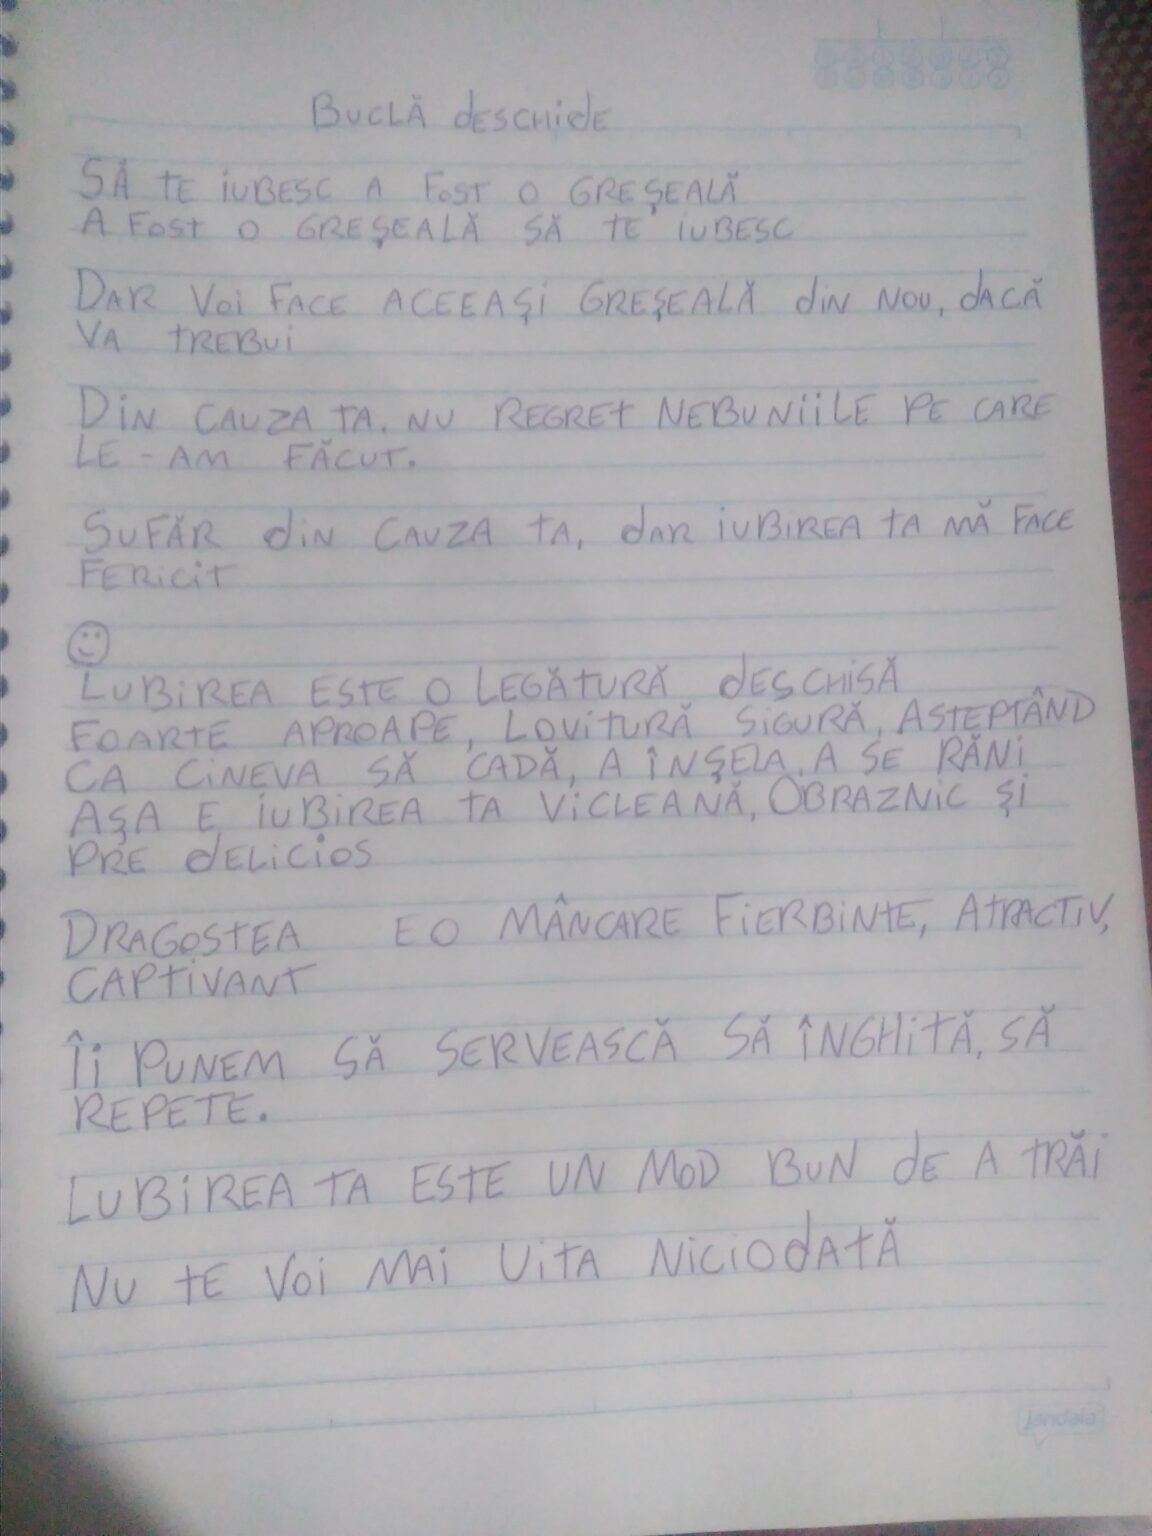 BUCLĂ dESCHidE
SĂ TE iUBESC A FOST O GREŞEALĂ
A FOST O GREŞEALĂ SĂ TE iUBESC
DAR VOi FACE ACEEAŞi GREŞEALĂ diN NOU, dACĂ
VA TREBUi
DiN CAUZA TA. NU REGRET NEBUNiiLE PE CARE
LE-AM FĂCUT.
SUFĂR diN CAUZA TA, dAR iUBIREA TA MĂ FACE
FERiCiT
LUBiREA ESTE O LEGĂTURĂ dEŞCHISĂ
FOARTE APROAPE, LOViTURĂ SiGURĂ, ASTEPTÂND
CA CiNEVA SĂ CADĂ, A ÎNŞELA, A SE RĂNi
AŞA E iUBIREA TA ViCLEANĂ, OBRAZNiC Şi
PRE dELiCiOS
DRAGOSTEA E O MÂNCARE FiERBiNTE, ATRACTiV,
CAPTiVANT
ÎI PUNEM SĂ SERVEASCĂ SĂ ÎNGHiTĂ, SĂ
REPETE.
LUBiREA TA ESTE UN MOD BUN dE A TRĂi
NU TE VOi MAi UiTA NiCiOdATĂ
jandaia